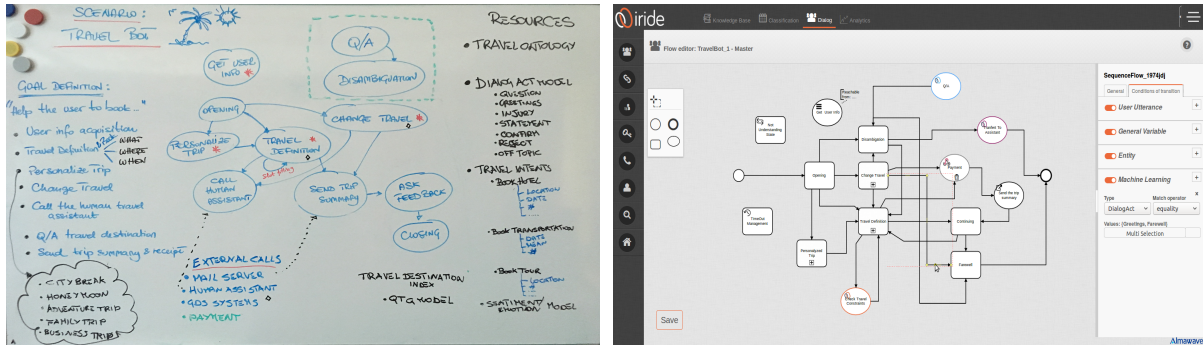 SCENARIO:
TRAVEL BOT
GOAL DEFINITION:
"Help the user to book..."
• User info acquisition
• Travel Definition
WHAT
WHERE
WHEN
• Personalize Trip
• Change Travel
• Call the human travel
assistant
• Q/A travel destination
• Send trip summary & receipt
• CITY BREAK
• HONEYMOON
• ADVENTURE TRIP
• FAMILY TRIP
• BUSINESS TRIP
GET USER
INFO *
Q/A
DISAMBIGUATION
OPENING
CHANGE TRAVEL *
PERSONALIZE
TRIP *
TRAVEL
DEFINITION
CALL
HUMAN
ASSISTANT
SEND TRIP
SUMMARY
ASK
FEEDBACK
CLOSING
EXTERNAL CALLS
• MAIL SERVER
• HUMAN ASSISTANT
• GDS SYSTEMS
• PAYMENT
TRAVEL DESTINATION
INDEX
RESOURCES
• TRAVEL ONTOLOGY
• DIALOG ACT MODEL
• QUESTION
• GREETINGS
• INJURY
• STATEMENT
• CONFIRM
• REJECT
• OFF TOPIC
• TRAVEL INTENTS
• BOOK HOTEL
LOCATION
DATE
• BOOK TRANSPORTATION
DATE
• BOOK TOUR
LOCATION
• SENTIMENT/
EMOTION MODEL
iride
Knowledge Base
Classification
Dialog
Analytics
Flow editor: TravelBot_1 - Master
Q/A
Get User info
Not
Understanding
State
Disambiguation
Transfer To
Assistant
Opening
Change Travel
Payment
Send the trip
summary
TimeOut
Management
Travel Definition
Continuing
Personalized
Trip
Farewell
Check Travel
Constraints
Save
SequenceFlow_1974jdj
General
Conditions of transition
User Utterance
General Variable
Entity
Machine Learning
x
Type
Match operator
DialogAct
equality
Values: (Greetings, Farewell)
Multi Selection
Almawave